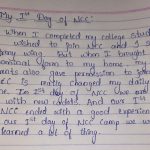 My 1st Day of NCC
When I completed my college stud
wished to join NCC and I
wing. But when I brought
form to my home, my
also gave permission to
NCC is really changed my daily
In 1st day of NCC we met
with new cadets. And our 1st
NCC ended with a good experien
our 1st day of NCC camp we
learned a lot of thing.